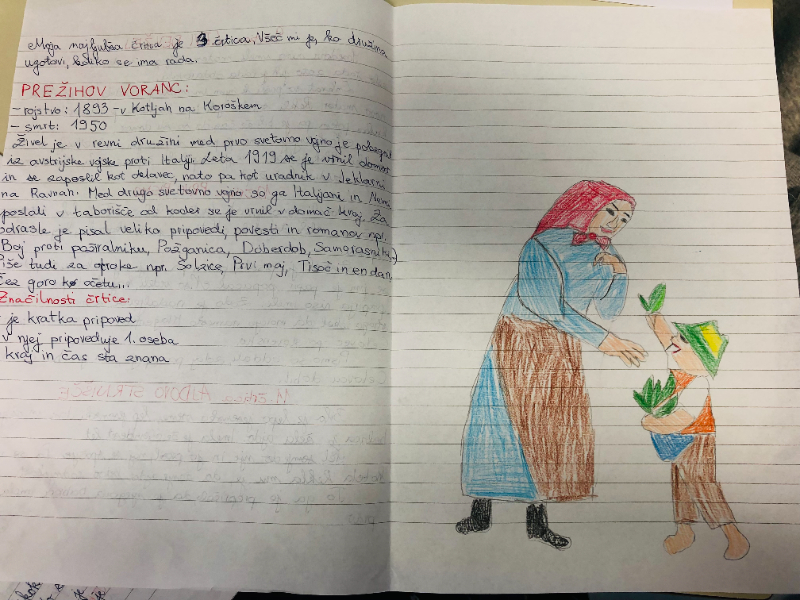 Moja najljubša črtica je 3 črtica, Všeč mi je, ko družina
ugotovi, koliko se ima rada.
PREŽIHOV VORANC:
- rojstvo: 1893 - v Kotljah na Koroškem
- smrt: 1950
Živel je v revni družini med prvo svetovno vojno je pobegnil
iz avstrijske vojske proti Italiji. Leta 1919 se je vrnil domov
in se zaposlil kot delavec, nato pa kot uradnik v Jeklarni
na Ravnah. Med drugo svetovno vojno so ga Italijani in Nemci
poslali v taborišče od koder se je vrnil v domač kraj. Za
odrasle je pisal veliko pripovedi, povesti in romanov npr.
Boj proti požiralniku, Požganica, Doberdob, Samorastniki,
Piše tudi za otroke npr. Solzice, Prvi maj, Tisoč in en dan,
Čez goro k očetu...
Značilnosti črtice:
je kratka pripoved
v njej pripoveduje 1. oseba
kraj in čas sta znana